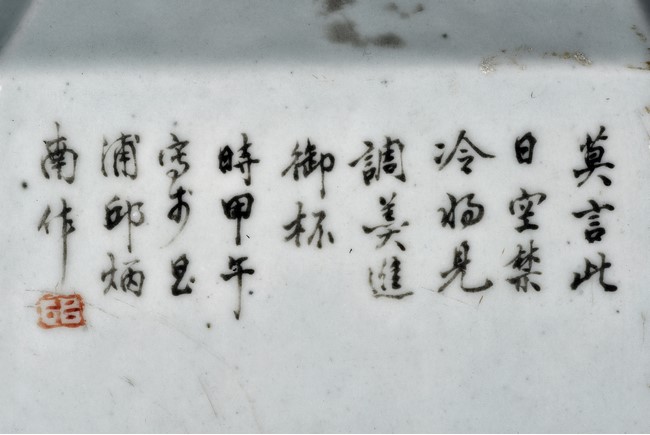 莫言此
日空禁
冷將見
調羹進
御杯
時甲午
寫於昌
浦邱炳
南作